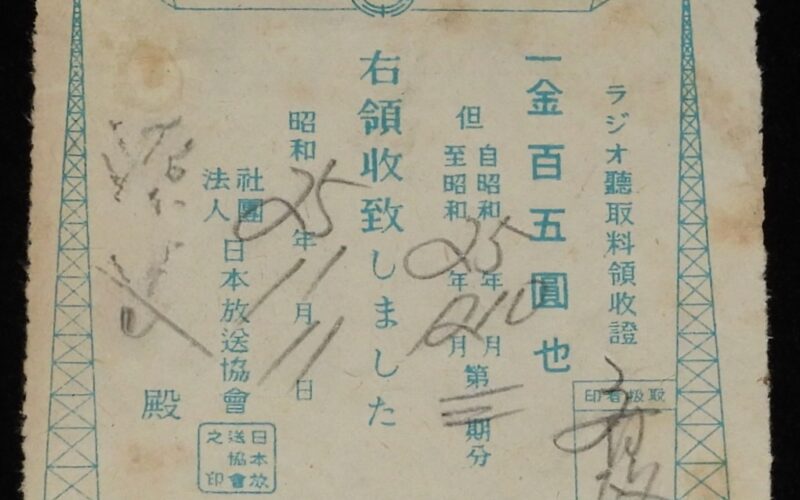 ラジオ聽取料領收證
一金百五圓也
但 自昭和25年10月
至昭和 年12月 第三期分
右領收致しました
昭和25年11月11日
社團法人 日本放送協會
殿
取扱者印
日本放送協會之印